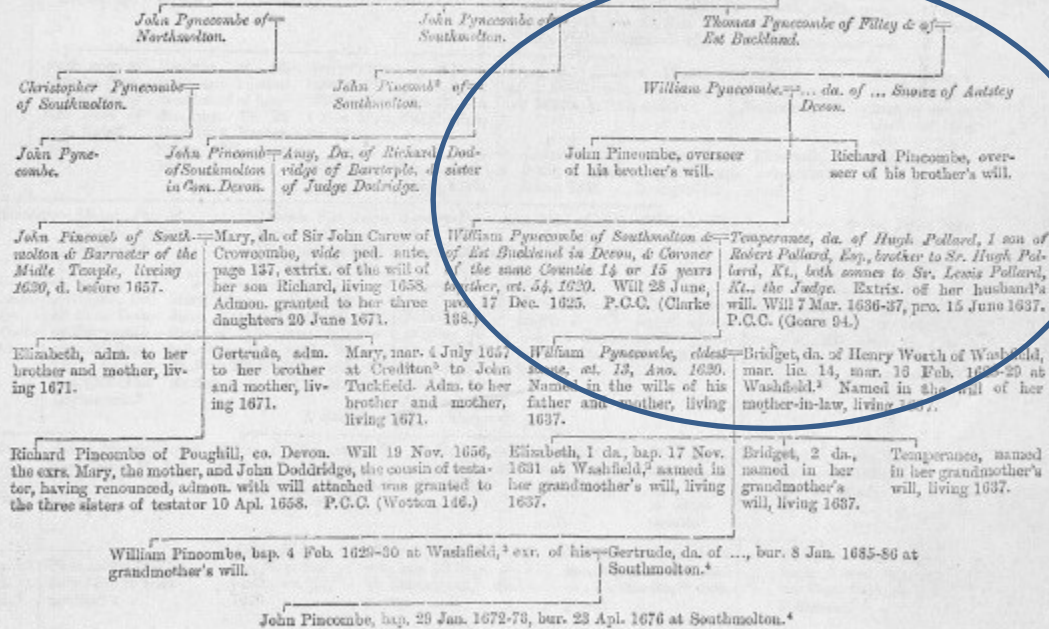 John Pynecombe of
Northmolton.
John Pynecombe of
Southmolton.
Thomas Pynecombe of Filley & of
Est Buckland.
Christopher Pynecombe
of Southmolton.
John Pincomb² of
Southmolton.
William Pynecombe. ... da. of ... Snowe of Anstey
Devon.
John Pyne-
combe.
John Pincomb
of Southmolton
in Com. Devon.
Amy, Da. of Richard Dod-
ridge of Barstaple, & sister
of Judge Dodridge.
John Pincombe, overseer
of his brother's will.
Richard Pincombe, over-
seer of his brother's will.
John Pincomb of South-
molton & Barrester of the
Midle Temple, liveing
1620, d. before 1657.
Mary, da. of Sir John Carew of
Crowcombe, vide ped. ante,
page 137, extrix. of the will of
her son Richard, living 1658.
Admon. granted to her three
daughters 20 June 1671.
William Pynecombe of Southmolton &
of Est Buckland in Devon, & Coroner
of the same Countie 14 or 15 years
together, æt. 54, 1620. Will 28 June,
pro. 17 Dec. 1625. P.C.C. (Clarke
138.)
Temperance, da. of Hugh Pollard, 1 son of
Robert Pollard, Esq., brother to Sr. Hugh Pol-
lard, Kt., both sonnes to Sr. Lewis Pollard,
Kt., the Judge. Extrix. of her husband's
will. Will 7 Mar. 1636-37, pro. 15 June 1637.
P.C.C. (Goare 94.)
Elizabeth, adm. to her
brother and mother, liv-
ing 1671.
Gertrude, adm.
to her brother
and mother, liv-
ing 1671.
Mary, mar. 4 July 1657
at Crediton⁵ to John
Tuckfield. Adm. to her
brother and mother,
living 1671.
William Pynecombe, eldest
sonne, æt. 13, Ano. 1620.
Named in the wills of his
father and mother, living
1637.
Bridget, da. of Henry Worth of Washfield,
mar. lic. 14, mar. 16 Feb. 1628-29 at
Washfield.³ Named in the will of her
mother-in-law, living 1637.
Richard Pincombe of Poughill, co. Devon. Will 19 Nov. 1656,
the exrs. Mary, the mother, and John Doddridge, the cousin of testa-
tor, having renounced, admon. with will attached was granted to
the three sisters of testator 10 Apl. 1658. P.C.C. (Wootton 146.)
Elizabeth, 1 da., bap. 17 Nov.
1631 at Washfield,³ named in
her grandmother's will, living
1637.
Bridget, 2 da.,
named in her
grandmother's
will, living 1637.
Temperance, named
in her grandmother's
will, living 1637.
William Pincombe, bap. 4 Feb. 1629-30 at Washfield,³ exr. of his
grandmother's will.
Gertrude, da. of ..., bur. 8 Jan. 1685-86 at
Southmolton.⁴
John Pincombe, bap. 29 Jan. 1672-73, bur. 23 Apl. 1676 at Southmolton.⁴